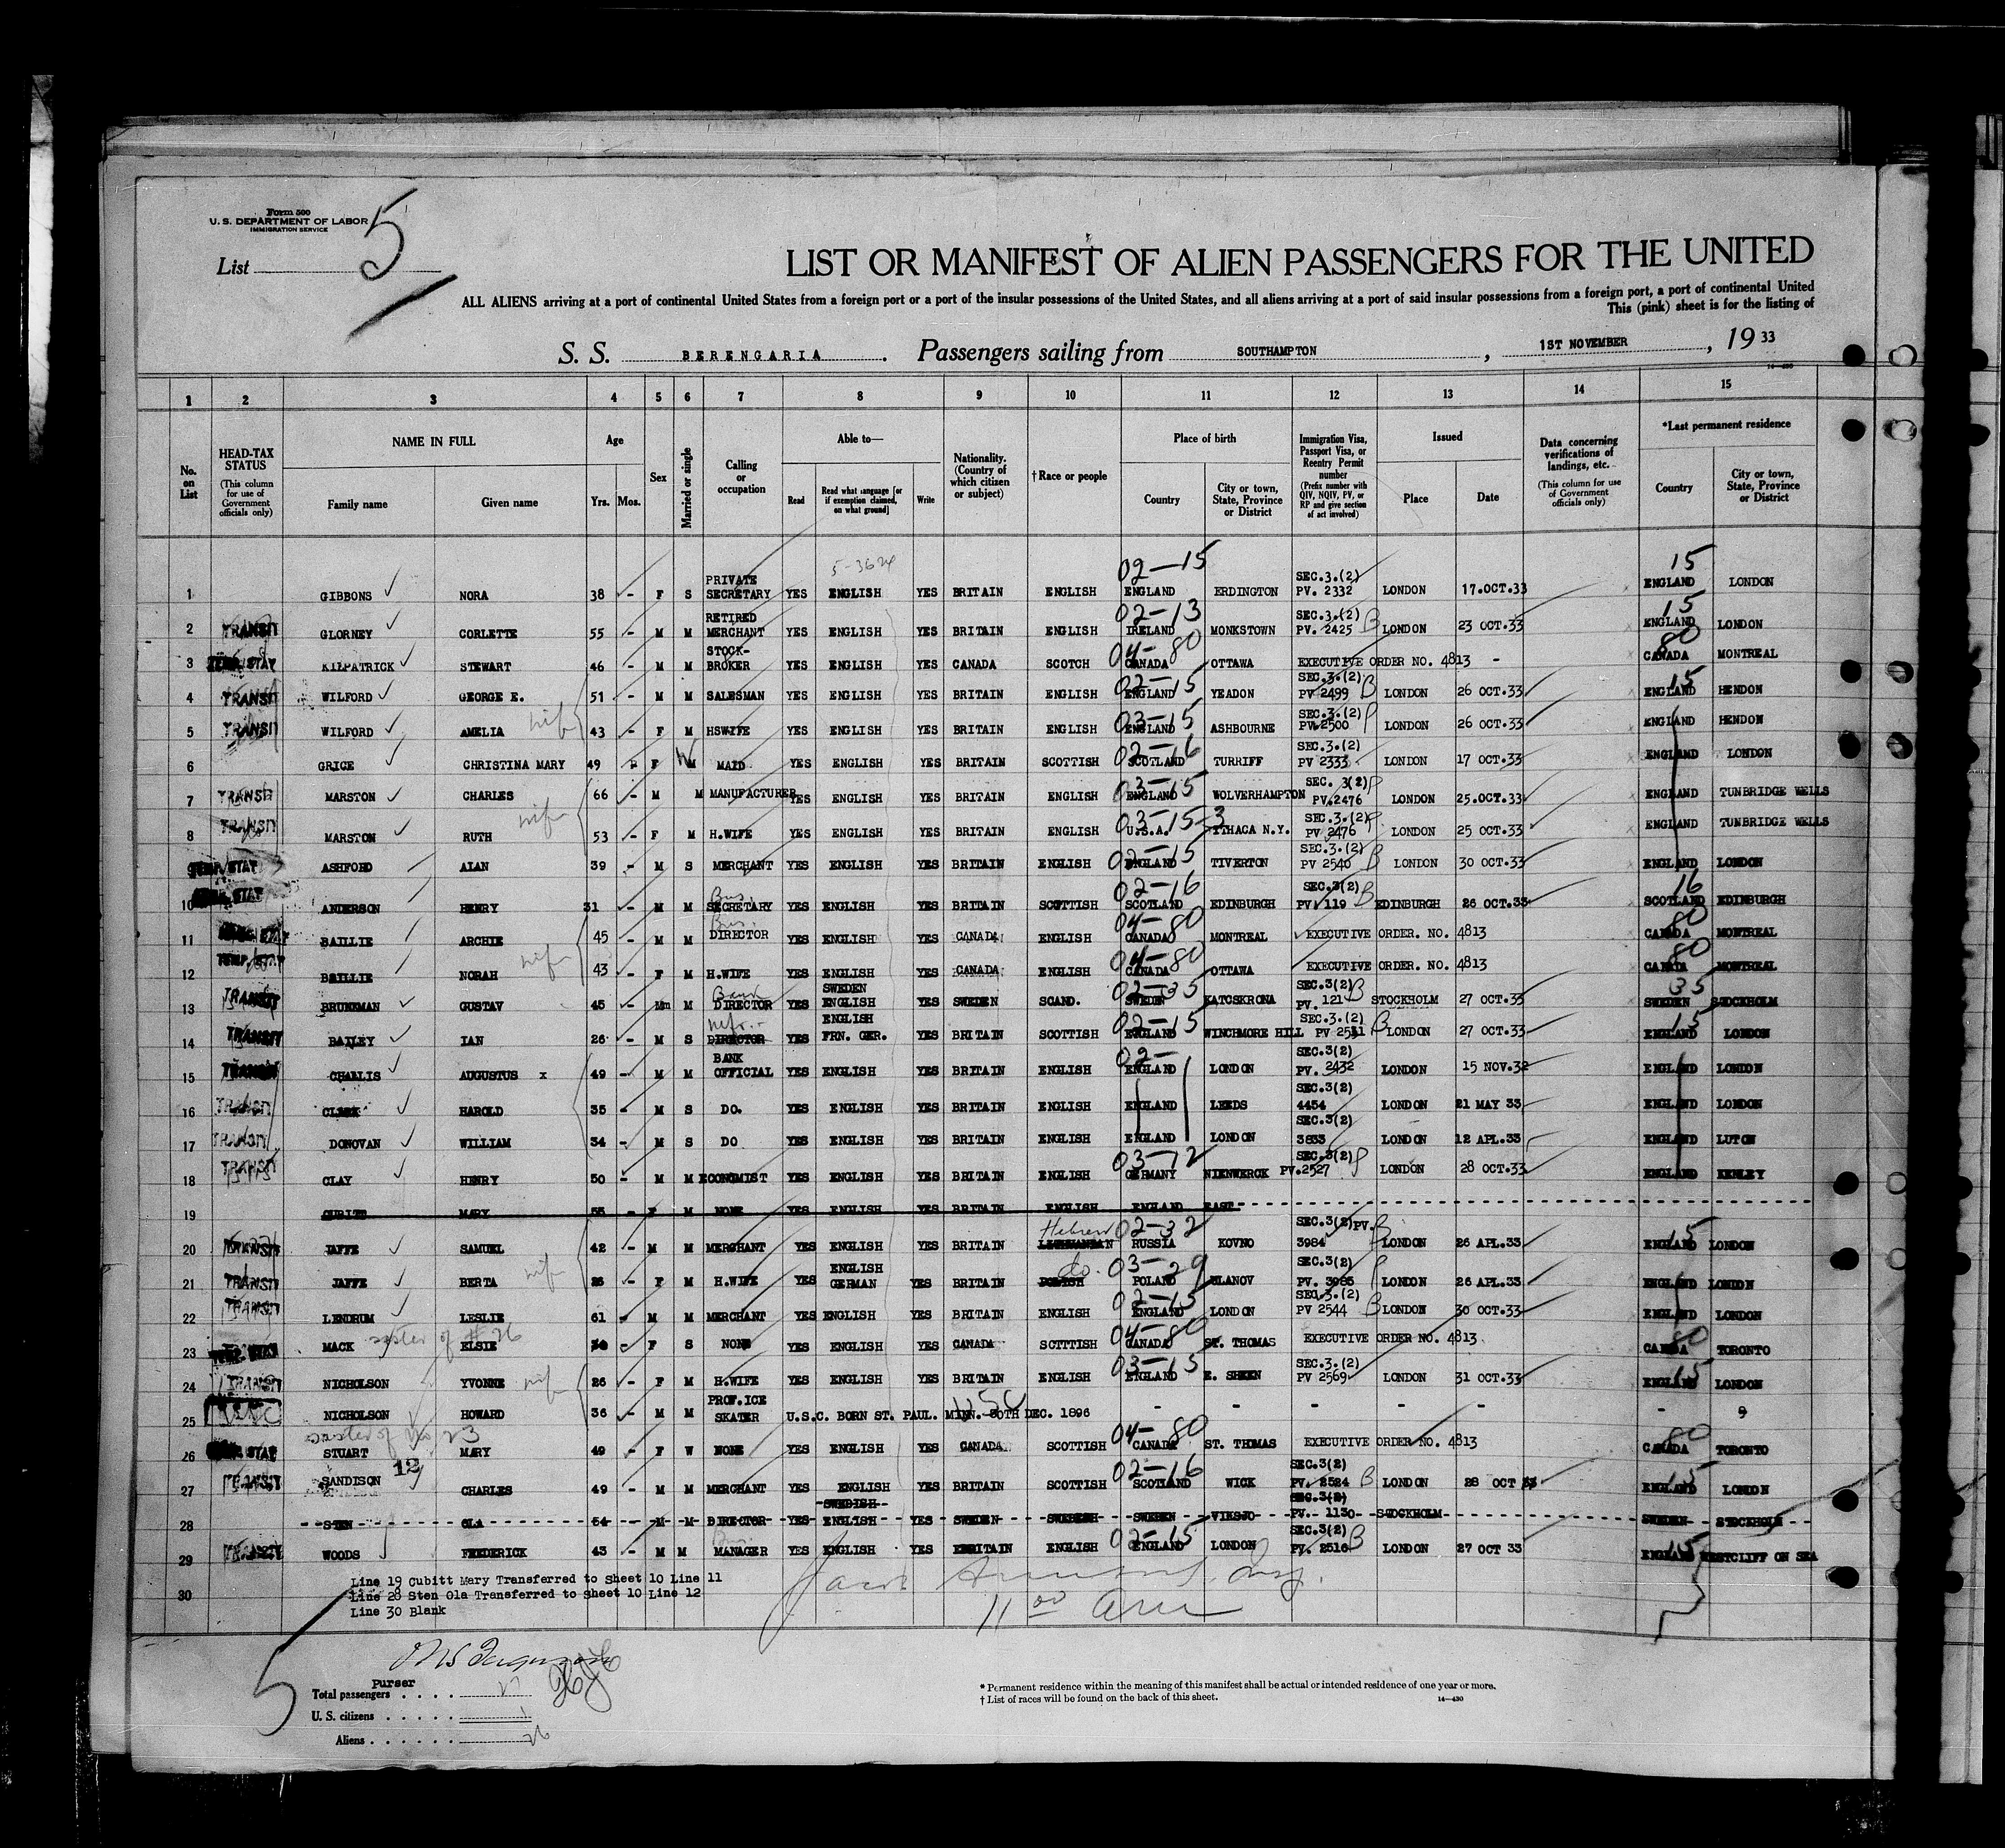 Form 500
U. S. DEPARTMENT OF LABOR
IMMIGRATION SERVICE
List 5
LIST OR MANIFEST OF ALIEN PASSENGERS FOR THE UNITED
ALL ALIENS arriving at a port of continental United States from a foreign port or a port of the insular possessions of the United States, and all aliens arriving at a port of said insular possessions from a foreign port, a port of continental United
This (pink) sheet is for the listing of
S. S. BERENGARIA . Passengers sailing from SOUTHAMPTON , 1ST NOVEMBER , 19 33
14—430
1 2 3 4 5 6 7 8 9 10 11 12 13 14 15
No. on List
HEAD-TAX STATUS (This column for use of Government officials only)
NAME IN FULL Family name Given name
Age Yrs. Mos.
Sex
Married or single
Calling or occupation
Able to— Read Read what language [or if exemption claimed, on what ground] Write
Nationality. (Country of which citizen or subject)
† Race or people
Place of birth Country City or town, State, Province or District
Immigration Visa, Passport Visa, or Reentry Permit number (Prefix number with QIV, NQIV, PV, or RP and give section of act involved)
Issued Place Date
Data concerning verifications of landings, etc. (This column for use of Government officials only)
*Last permanent residence Country City or town, State, Province or District
5-3624
1 GIBBONS NORA 38 - F S PRIVATE SECRETARY YES ENGLISH YES BRITAIN ENGLISH 02—15 ENGLAND ERDINGTON SEC.3.(2) PV. 2332 LONDON 17.OCT.33 15 ENGLAND LONDON
2 TRANSIT GLORNEY CORLETTE 55 - M M RETIRED MERCHANT YES ENGLISH YES BRITAIN ENGLISH 02—13 IRELAND MONKSTOWN SEC.3.(2) PV. 2425 B LONDON 23 OCT.33 15 ENGLAND LONDON
3 TEMP. STAY KILPATRICK STEWART 46 - M M STOCK-BROKER YES ENGLISH YES CANADA SCOTCH 04—80 CANADA OTTAWA EXECUTIVE ORDER NO. 4813 - 80 CANADA MONTREAL
4 TRANSIT WILFORD GEORGE E. 51 - M M SALESMAN YES ENGLISH YES BRITAIN ENGLISH 02—15 ENGLAND YEADON SEC.3.(2) PV 2499 B LONDON 26 OCT.33 15 ENGLAND HENDON
5 TRANSIT WILFORD AMELIA wife 43 - F M HSWIFE YES ENGLISH YES BRITAIN ENGLISH 03—15 ENGLAND ASHBOURNE SEC.3.(2) PV.2500 P LONDON 26 OCT.33 ENGLAND HENDON
6 GRICE CHRISTINA MARY 49 - F W M MAID YES ENGLISH YES BRITAIN SCOTTISH 02—16 SCOTLAND TURRIFF SEC.3.(2) PV 2333 LONDON 17 OCT.33 ENGLAND LONDON
7 TRANSIT MARSTON CHARLES 66 - M M MANUFACTURER YES ENGLISH YES BRITAIN ENGLISH 03—15 ENGLAND WOLVERHAMPTON SEC. 3(2) P PV.2476 LONDON 25.OCT.33 ENGLAND TUNBRIDGE WELLS
8 TRANSIT MARSTON RUTH wife 53 - F M H.WIFE YES ENGLISH YES BRITAIN ENGLISH 03—15-3 U.S.A. ITHACA N.Y. SEC.3.(2) P PV 2476 LONDON 25 OCT.33 ENGLAND TUNBRIDGE WELLS
9 TEMP. STAY ASHFORD ALAN 39 - M S MERCHANT YES ENGLISH YES BRITAIN ENGLISH 02—15 ENGLAND TIVERTON SEC.3.(2) PV 2540 B LONDON 30 OCT.33 ENGLAND LONDON
10 STAY ANDERSON HENRY 31 - M M Bus. SECRETARY YES ENGLISH YES BRITAIN SCOTTISH 02—16 SCOTLAND EDINBURGH SEC.3(2) PV. 119 B EDINBURGH 26 OCT.33 16 SCOTLAND EDINBURGH
11 BAILLIE ARCHIE 45 - M M Bus. DIRECTOR YES ENGLISH YES CANADA ENGLISH 04—80 CANADA MONTREAL EXECUTIVE ORDER. NO. 4813 80 CANADA MONTREAL
12 TEMP. STAY BAILLIE NORAH wife 43 - F M H.WIFE YES ENGLISH YES CANADA ENGLISH 04—80 CANADA OTTAWA EXECUTIVE ORDER. NO. 4813 80 CANADA MONTREAL
13 TRANSIT BRUNSMAN GUSTAV 45 - Mm M Bank DIRECTOR YES SWEDEN ENGLISH YES SWEDEN SCAND. 02—35 SWEDEN KATCSKRONA SEC.3(2) PV. 121 B STOCKHOLM 27 OCT.33 35 SWEDEN STOCKHOLM
14 TRANSIT BAILEY IAN 26 - M S DIRECTOR YES ENGLISH FRN. GER. YES BRITAIN SCOTTISH 02—15 ENGLAND WINCHMORE HILL SEC.3.(2) PV 2511 B LONDON 27 OCT.33 15 ENGLAND LONDON
15 TRANSIT CHALLIS AUGUSTUS x 49 - M M BANK OFFICIAL YES ENGLISH YES BRITAIN ENGLISH 02— ENGLAND LONDON SEC.3(2) PV. 2432 LONDON 15 NOV.32 ENGLAND LONDON
16 TRANSIT CLARK HAROLD 35 - M S DO. YES ENGLISH YES BRITAIN ENGLISH ENGLAND LEEDS SEC.3(2) 4454 LONDON 21 MAY 33 ENGLAND LONDON
17 TRANSIT DONOVAN WILLIAM 34 - M S DO YES ENGLISH YES BRITAIN ENGLISH ENGLAND LONDON SEC.3(2) 3833 LONDON 12 APL.33 ENGLAND LUTON
18 TRANSIT CLAY HENRY 50 - M M ECONOMIST YES ENGLISH YES BRITAIN ENGLISH 03—12 GERMANY NIENWERCK SEC.3(2) P PV.2527 LONDON 28 OCT.33 ENGLAND KENLEY
19 CUBITT MARY 55 - F M NONE YES ENGLISH YES BRITAIN ENGLISH ENGLAND EAST
20 TRANSIT JAFFE SAMUEL 42 - M M MERCHANT YES ENGLISH YES BRITAIN Hebrew LITHUANIAN 02—32 RUSSIA KOVNO SEC.3(2)PV. 3984 B LONDON 26 APL.33 15 ENGLAND LONDON
21 TRANSIT JAFFE BERTA wife 26 - F M H.WIFE YES ENGLISH GERMAN YES BRITAIN do. POLISH 03—29 POLAND ULANOV SEC.3(2) PV. 3985 P LONDON 26 APL.33 ENGLAND LONDON
22 TRANSIT LENDRUM LESLIE 61 - M M MERCHANT YES ENGLISH YES BRITAIN ENGLISH 02—15 ENGLAND LONDON SEC.3.(2) PV 2544 B LONDON 30 OCT.33 ENGLAND LONDON
23 TEMP. STAY MACK sister of # 26 ELSIE - F S NONE YES ENGLISH YES CANADA SCTTTISH 04—80 CANADA ST. THOMAS EXECUTIVE ORDER NO. 4813 80 CANADA TORONTO
24 TRANSIT NICHOLSON YVONNE wife 26 - F M H.WIFE YES ENGLISH YES BRITAIN ENGLISH 03—15 ENGLAND E. SHEEN SEC.3.(2) PV 2569 LONDON 31 OCT.33 15 ENGLAND LONDON
25 USC NICHOLSON HOWARD 36 - M M PROF.ICE SKATER U.S.C. BORN ST. PAUL. MINN. 30TH DEC. 1896 USC - - - - - - 9
26 STAY sister of No 23 STUART MARY 49 - F W NONE YES ENGLISH YES CANADA SCOTTISH 04—80 CANADA ST. THOMAS EXECUTIVE ORDER NO. 4813 80 CANADA TORONTO
27 TRANSIT SANDISON 12 CHARLES 49 - M M MERCHANT YES ENGLISH YES BRITAIN SCOTTISH 02—16 SCOTLAND WICK SEC.3(2) PV. 2524 B LONDON 28 OCT 33 15 ENGLAND LONDON
28 STEN OLA 54 - M M DIRECTOR YES SWEDISH ENGLISH YES SWEDEN SWEDISH SWEDEN VIKSJO SEC.3(2) PV. 1130 STOCKHOLM SWEDEN STOCKHOLM
29 TRANSIT WOODS FREDERICK 43 - M M Bus. MANAGER YES ENGLISH YES BRITAIN ENGLISH 02—15 ENGLAND LONDON SEC.3(2) PV. 2516 B LONDON 27 OCT 33 15 ENGLAND WESTCLIFF ON SEA
Line 19 Cubitt Mary Transferred to Sheet 10 Line 11
30 Line 28 Sten Ola Transferred to Sheet 10 Line 12
Line 30 Blank
11 00 am
5
Purser
Total passengers . . . . 27
U. S. citizens . . . . . 1
Aliens . . . . . . 26
* Permanent residence within the meaning of this manifest shall be actual or intended residence of one year or more.
† List of races will be found on the back of this sheet.
14—430